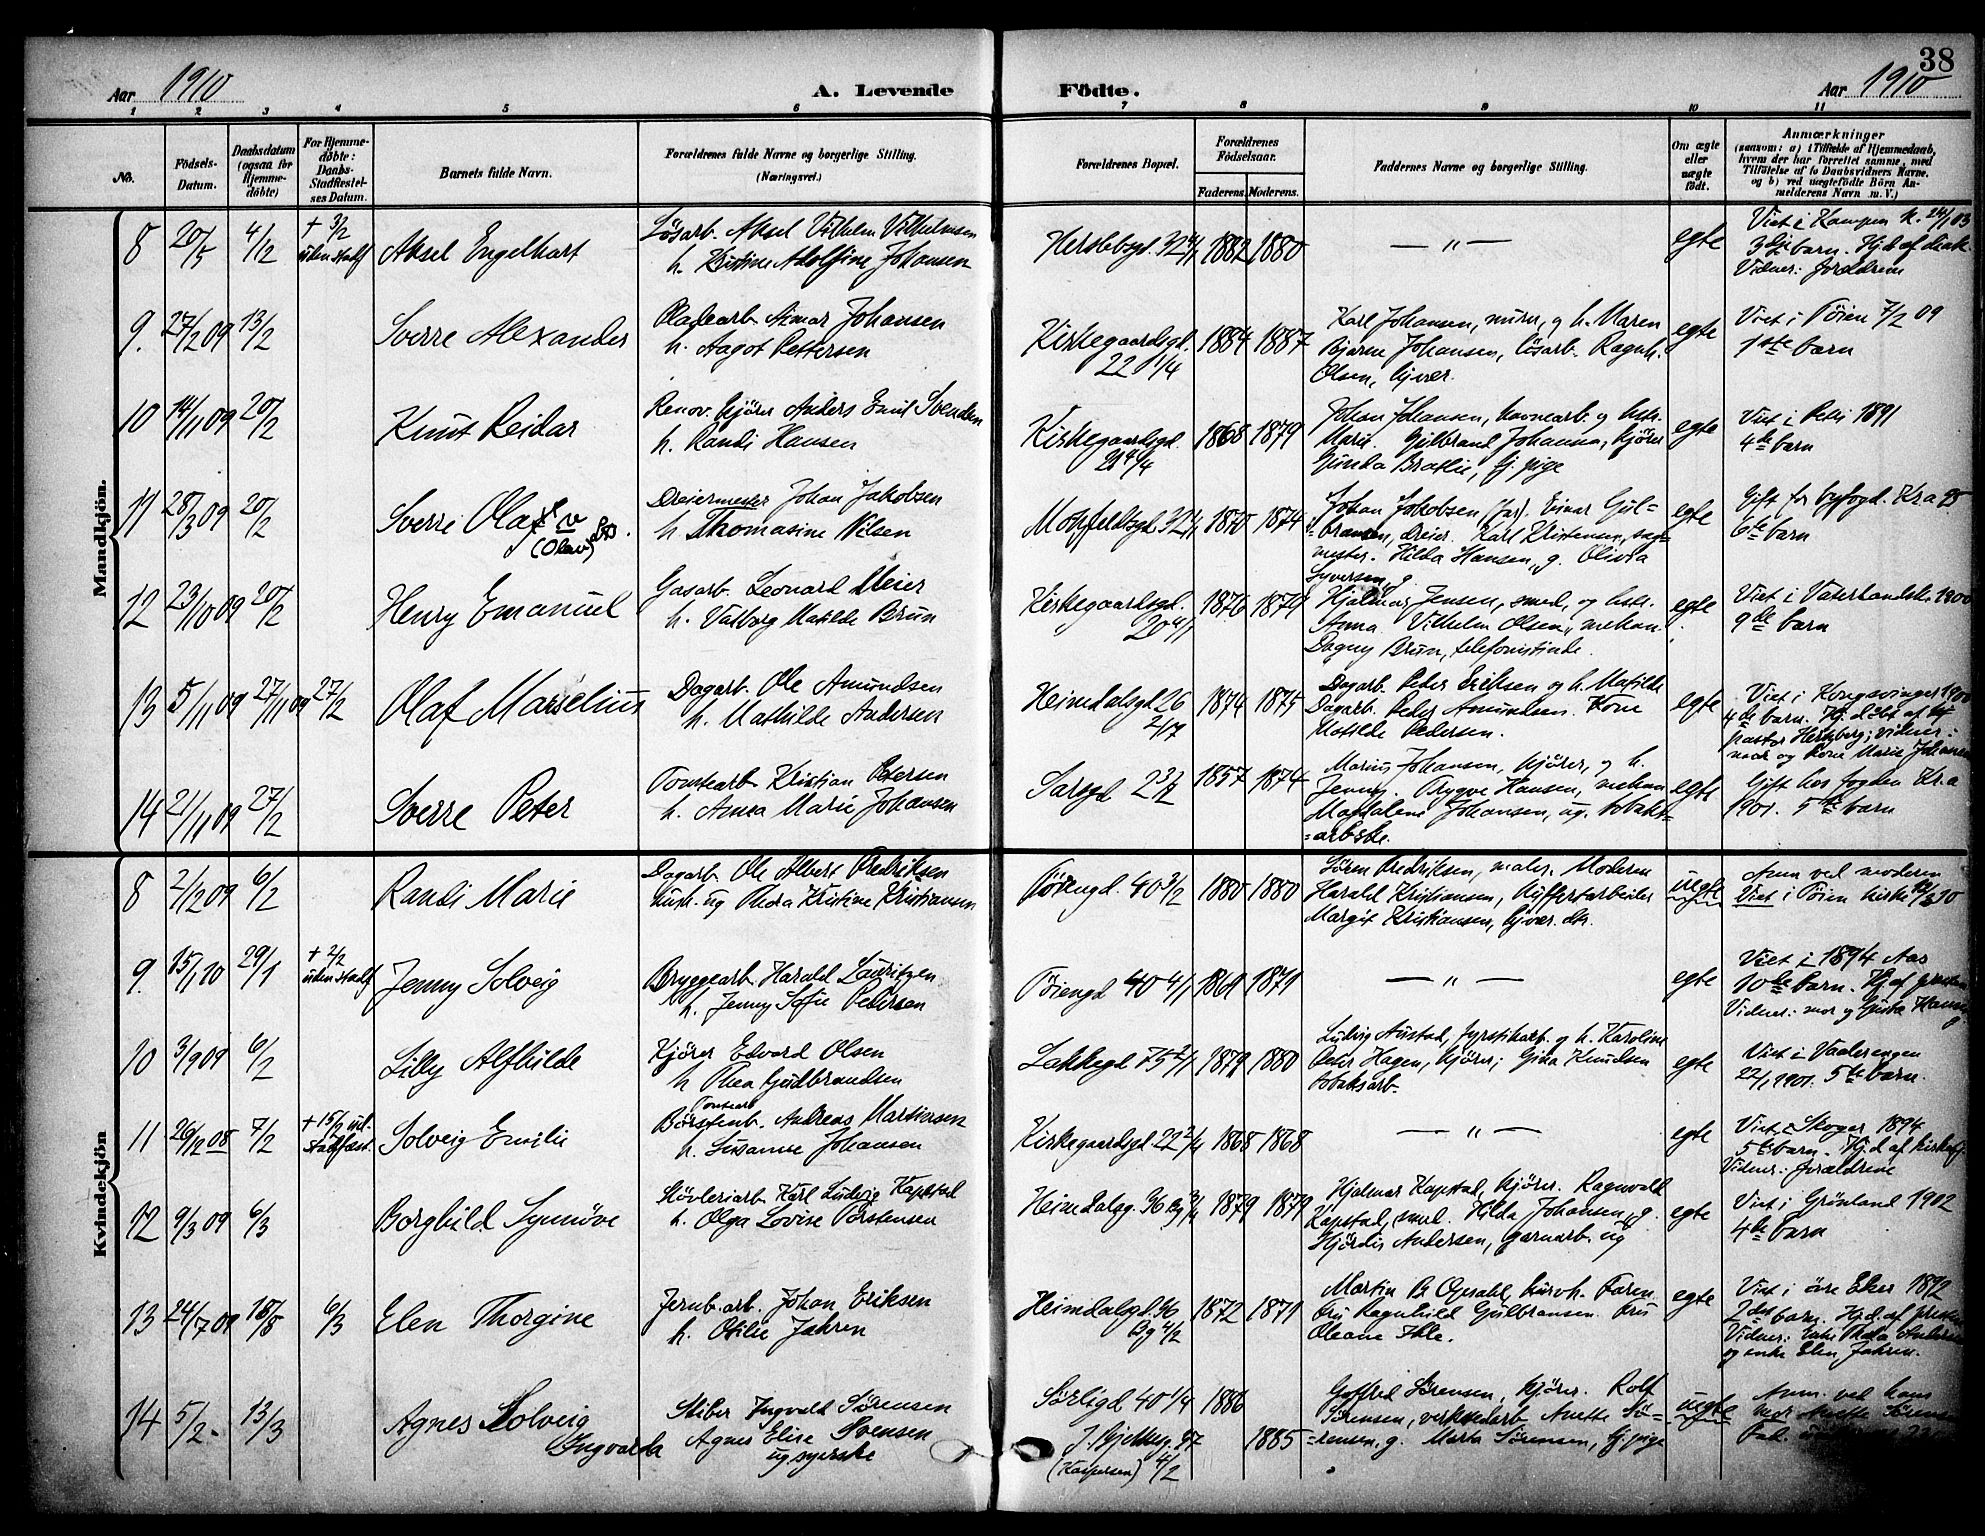 38
Aar 1910
A. Levende
Födte.
Aar 1910
1 2 3 4 5 6 7 8 9 10 11
No.
Födsels-Datum.
Daabsdatum (ogsaa for Hjemmedöbte)
For Hjemmedöbte: Daabs-Stadfæstelses Datum.
Barnets fulde Navn.
Forældrenes fulde Navne og borgerlige Stilling. (Næringsvei.)
Forældrenes Bopæl.
Forældrenes Födselsaar.
Faderens. Moderens.
Faddernes Navne og borgerlige Stilling.
Om ægte eller uægte födt.
Anmærkninger
(saasom: a) i Tilfælde af Hjemmedaab,
hvem der har forrettet samme, med
Tilföielse af to Daabsvidners Navne,
og b) ved uægtefödte Börn An-
melderens Navn m. V.)
Mandkjön.
8 20/5 4/2 + 3/2 uden stadf Aksel Engelhart
Lösarb. Aksel Vilhelm Vilhelmsen
h. Kristine Adolfine Johansen
Herslebsgd. 32 1882 1880 — " — egte
Viet i Kampen k. 24/1 03
Vidner: forældrene
9. 27/2 09 13/2 Sverre Alexander
Pladearb Aimar Johansen
h. Aagot Pettersen
Kirkegaardsgd. 22 1/4 1884 1887
Karl Johansen, murer, og h. Maren
Bjarne Johansen, lösarb. Ragnh.
Olsen, hjvær.
egte
Viet i Töien 7/2 09
1ste barn
10 14/11 09 20/2 Knut Reidar
Renov. kjörer Anders Emil Svendsen
h. Randi Hansen
Kirkegaardsgd. 1868 1879
Johan Johansen, havnearb og hstr.
Marie. Gulbrand Johannsen, kjörer
Gunda Bratlie, tj. pige
egte
Viet i Petri 1891
4de barn
11 28/3 09 20/2 Sverre Olaf v (Olav)
Dreiermester Johan Jakobsen
h Thomasine Nilsen
Motzfeldtsgd 32 1870 1874
Johan Jakobsen (far). Einar Gul=
bransen, dreier. Karl Kristensen, sag=
mester. Hilda Hansen, g. Olivia
Syversen, g.
egte
Gift for byfogd. Kr.a 95
6te barn
12 23/10 09 20/2 Henry Emanuel
Gasarb. Leonard Meier
h. Valborg Matilde Brun
Kirkegaardsgd. 20 4/1 1876 1879
Hjalmar Jensen, smed, og hstr.
Anna. Vilhelm Olsen, mekan.
Dagny Brun, telefonistinde.
egte
Viet i Vaterlandsk. 1900
9de barn
13 5/11 09 27/11 09 27/2 Olaf Marselius
Dagarb. Ole Amundsen
h. Mathilde Andersen
Heimdalsgd 26 1874 1875
Dagarb. Peder Eriksen og h. Matilde
Dagarb. Peder Amundsen. Kone
Matilde Pedersen.
egte
Viet i Kongsvinger 1900
4de barn. Hj.döbt af
pastor Hertzberg; vidner:
mor og kone Marie Johansen
14 21/11 09 27/2 Sverre Peter
Tomtearb Kristian Petersen
h. Anna Marie Johansen
Sarsgd 23 1857 1874
Marius Johansen, kjörer, og h.
Jenny. Trygve Hansen, mekan
Magdalene Johansen, ug. tobaks-
=arbske.
egte
Gift hos fogden Kr.a
1901. 5te barn
Kvindekjön
8 2/2 09 6/2 Randi Marie
Dagarb. Ole Albert Fredriksen
hush. ug Thora Kristine Kristiansen
Töiengd. 40 3/2 1880 1880
Sören Fredriksen, maler. Moderen
Harald Kristiansen,
Margit Kristiansen, hjvær. dtr.
uegte
Anm ved moderen
Viet i Töien kirke
9. 15/1 10 29/1 + 2/2 uden stadf Jenny Solveig
Bryggearb Harald Lauritzen
h. Jenny Sofie Petersen
Töiengd 40 4/1 1869 1871 — " — egte
Viet i 1894 Aas
10de barn. Hj. af presten
Vidner: mor og Gusta Hansen
10 3/9 09 6/2 Lilly Alfhilde
Kjörer Edvard Olsen
h Thea Gudbrandsen
Lakkegd 75 2/1 1879 1880
Ludvig Austad, fyrstikarb. og h. Karoline
Peter Hagen, kjörer; Gina Knudsen
tobaksarb.
egte
Viet i Vaalerengen
22/1 1901. 5te barn.
11 26/12 08 7/2 + 15/2 ud. stadfæst. Solveig Emilie
Tomtearb
Börstenb. Andreas Martinsen
h. Susanne Johansen
Kirkegaardsgd 22 2/4 1868 1868 — " — egte
Viet i Skoger 1894
5te barn.
Vidner: forældrene
12 9/3 09 6/3 Borghild Synnöve
Stövleriarb Karl Ludvig Kapstad
h. Olga Lovise Torstensen
Heimdalsg. 36 1879 1879
Hjalmar Kapstad, kjörer. Ragnvald
Kapstad, smed. Hilda Johansen, g.
Hjördis Andersen, garnarb. ug
egte
Viet i Grönland 1902
4de barn
13 24/7 09 18/8 6/3 Elen Thorgine
Jernb.arb. Johan Eriksen
h. Otilie Jahren
Heimdalsgd 1872 1871
Martin B. Opsahl, Faren
fru Ragnhild Gulbransen. Fru
Oleane Ihle.
egte
Viet i övre Eker 1892
2den barn. Hj.d. af presten
Vidner: Enke Thea
og enke Elen Jahren.
14 5/2 - 13/3 Agnes Solveig Ingvarda
Stiber Ingvald Sörensen
Agnes Elise Svensen
ug syerske
Sörligd 40 1/4 1886
(Kaspersen) 4/2 1885
Gotfred Sörensen, kjörer. Rolf
Sörensen, verkstedarb Anette Sö=
=rensen, g. Marta Sörensen, tj. pige
uegte
Anm. ved hans
mor Anette Sörensen